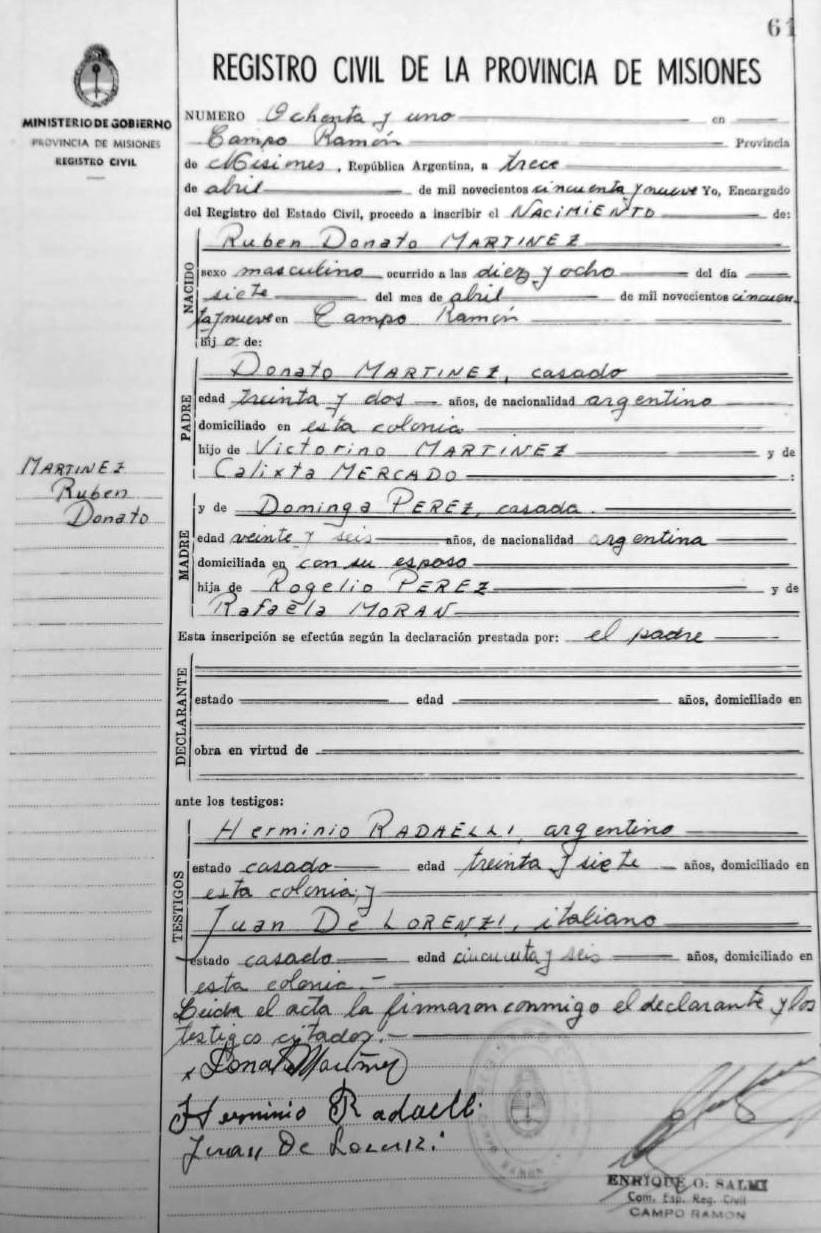 61
REGISTRO CIVIL DE LA PROVINCIA DE MISIONES
MINISTERIO DE GOBIERNO
PROVINCIA DE MISIONES
REGISTRO CIVIL
NUMERO Ochenta y uno en
Campo Ramón Provincia
de Misiones, República Argentina, a trece
de abril de mil novecientos cincuenta y nueve Yo, Encargado
del Registro del Estado Civil, procedo a inscribir el NACIMIENTO de:
NACIDO
Ruben Donato MARTINEZ
sexo masculino ocurrido a las diez y ocho del día
siete del mes de abril de mil novecientos cincuen
ta y nueve en Campo Ramón
hij o de:
PADRE
Donato MARTINEZ, casado
edad treinta y dos años, de nacionalidad argentino
domiciliado en esta colonia
hijo de Victorino MARTINEZ y de
Calixta MERCADO :
MARTINEZ
Ruben
Donato
MADRE
y de Dominga PEREZ, casada.
edad veinte y seis años, de nacionalidad argentina
domiciliada en con su esposo
hija de Rogelio PEREZ y de
Rafaela MORAN
Esta inscripción se efectúa según la declaración prestada por: el padre
DECLARANTE
estado edad años, domiciliado en
obra en virtud de
ante los testigos:
TESTIGOS
Herminio RADAELLI, argentino
estado casado edad treinta y siete años, domiciliado en
esta colonia; y
Juan De LORENZI, italiano
estado casado edad cincuenta y seis años, domiciliado en
esta colonia.-
Leida el acta la firmaron conmigo el declarante y los
testigos citados.-
x Donato Martinez
Herminio Radaelli
Juan De Lorenzi
ENRIQUE O. SALMI
Com. Esp. Reg. Civil
CAMPO RAMON